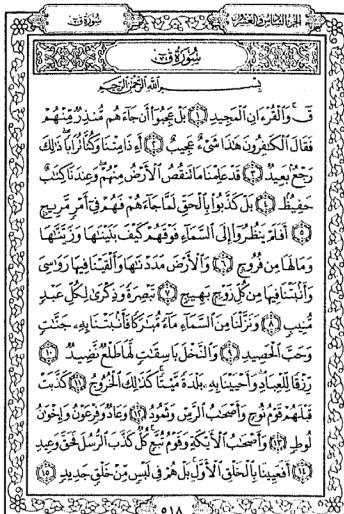 الجزء السادس والعشرون سورة ق
سورة ق
بسم الله الرحمن الرحيم
قٓ ۚ وَٱلْقُرْءَانِ ٱلْمَجِيدِ ١ بَلْ عَجِبُوٓا۟ أَن جَآءَهُم مُّنذِرٌ مِّنْهُمْ
فَقَالَ ٱلْكَـٰفِرُونَ هَـٰذَا شَىْءٌ عَجِيبٌ ٢ أَءِذَا مِتْنَا وَكُنَّا تُرَابًا ۖ ذَٰلِكَ
رَجْعٌۢ بَعِيدٌ ٣ قَدْ عَلِمْنَا مَا تَنقُصُ ٱلْأَرْضُ مِنْهُمْ ۖ وَعِندَنَا كِتَـٰبٌ
حَفِيظٌۢ ٤ بَلْ كَذَّبُوا۟ بِٱلْحَقِّ لَمَّا جَآءَهُمْ فَهُمْ فِىٓ أَمْرٍ مَّرِيجٍ
٥ أَفَلَمْ يَنظُرُوٓا۟ إِلَى ٱلسَّمَآءِ فَوْقَهُمْ كَيْفَ بَنَيْنَـٰهَا وَزَيَّنَّـٰهَا
وَمَا لَهَا مِن فُرُوجٍ ٦ وَٱلْأَرْضَ مَدَدْنَـٰهَا وَأَلْقَيْنَا فِيهَا رَوَٰسِىَ
وَأَنۢبَتْنَا فِيهَا مِن كُلِّ زَوْجٍۭ بَهِيجٍ ٧ تَبْصِرَةً وَذِكْرَىٰ لِكُلِّ عَبْدٍ
مُّنِيبٍ ٨ وَنَزَّلْنَا مِنَ ٱلسَّمَآءِ مَآءً مُّبَـٰرَكًا فَأَنۢبَتْنَا بِهِۦ جَنَّـٰتٍ
وَحَبَّ ٱلْحَصِيدِ ٩ وَٱلنَّخْلَ بَاسِقَـٰتٍ لَّهَا طَلْعٌ نَّضِيدٌ ١٠
رِّزْقًا لِّلْعِبَادِ ۖ وَأَحْيَيْنَا بِهِۦ بَلْدَةً مَّيْتًا ۚ كَذَٰلِكَ ٱلْخُرُوجُ ١١ كَذَّبَتْ
قَبْلَهُمْ قَوْمُ نُوحٍ وَأَصْحَـٰبُ ٱلرَّسِّ وَثَمُودُ ١٢ وَعَادٌ وَفِرْعَوْنُ وَإِخْوَٰنُ
لُوطٍ ١٣ وَأَصْحَـٰبُ ٱلْأَيْكَةِ وَقَوْمُ تُبَّعٍ ۚ كُلٌّ كَذَّبَ ٱلرُّسُلَ فَحَقَّ وَعِيدِ
١٤ أَفَعَيِينَا بِٱلْخَلْقِ ٱلْأَوَّلِ ۚ بَلْ هُمْ فِى لَبْسٍ مِّنْ خَلْقٍ جَدِيدٍ ١٥
٥١٨